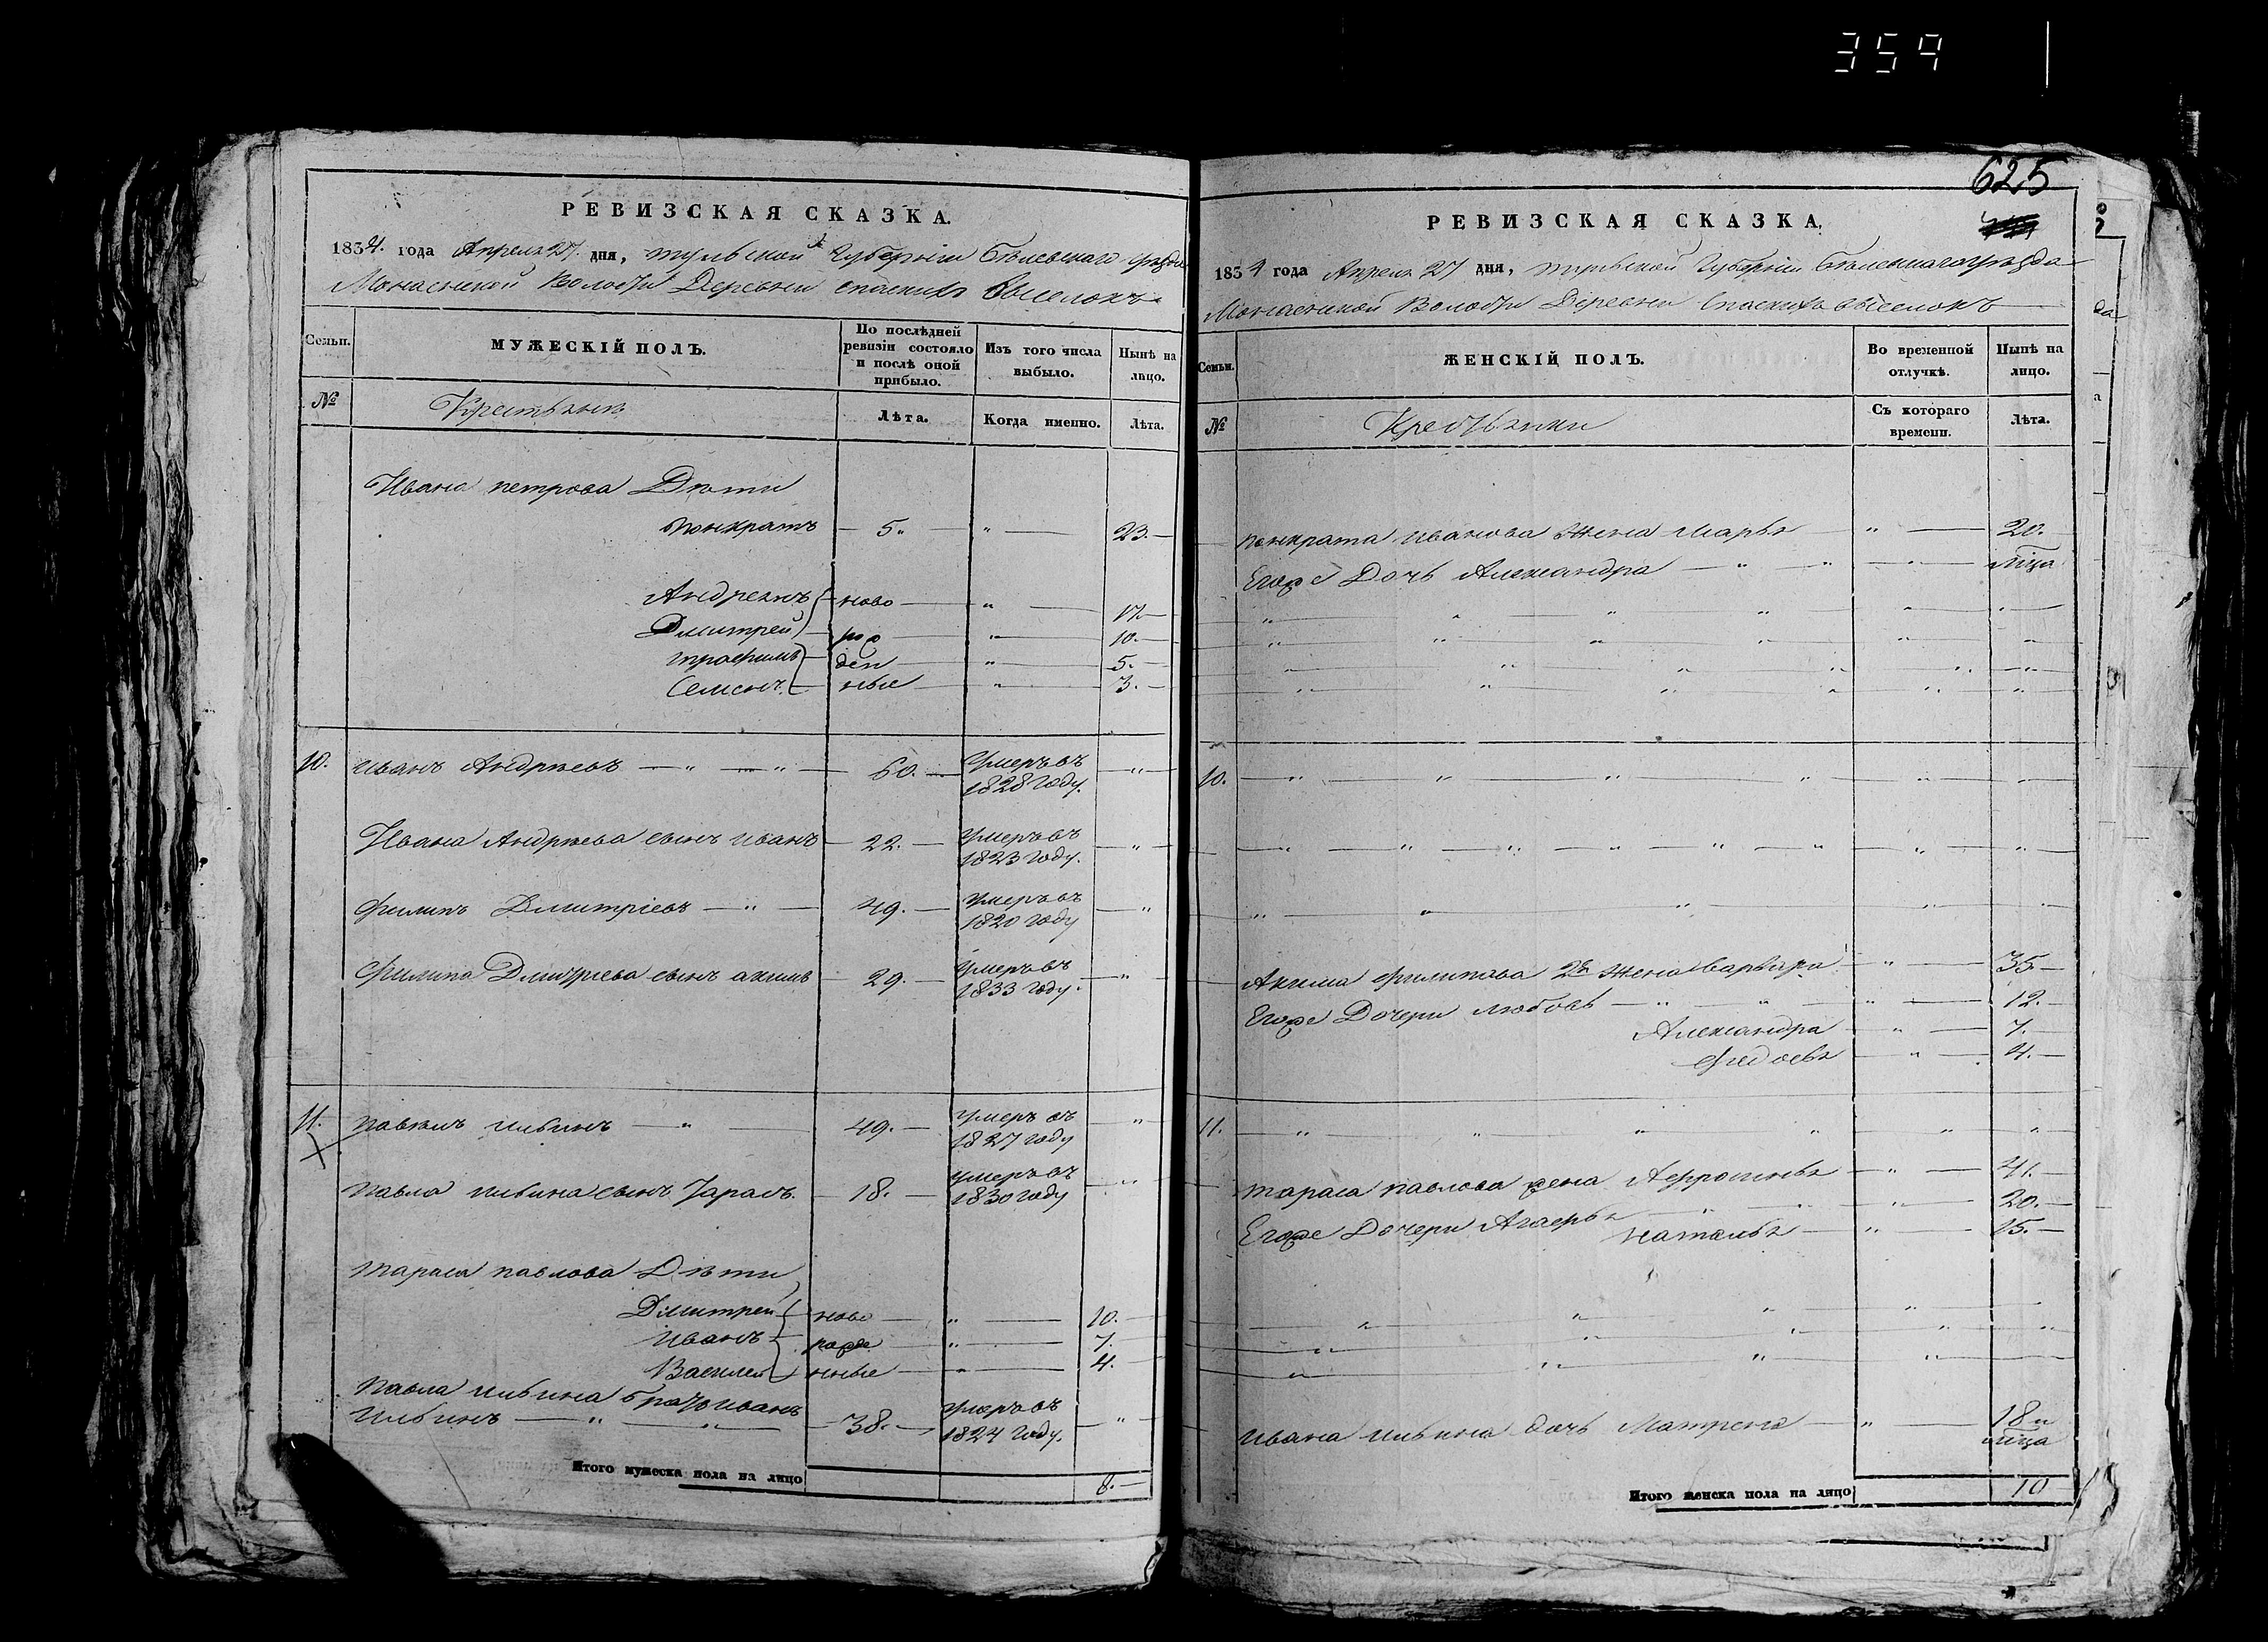 359
РЕВИЗСКАЯ СКАЗКА.
1834. года Апреля 27. дня, тульской Губернии Бѣлевского уѣзда
Монаснской Волости Деревни спаских выселокъ
Семьи.
МУЖЕСКІЙ ПОЛЪ.
По послѣдней ревизіи состояло и послѣ оной прибыло.
Изъ того числа выбыло.
Нынѣ на лицо.
№
Крестьяне
Лѣта.
Когда именно.
Лѣта.
Ивана петрова Дѣти
понкратъ 5 " 23.
Андреянъ ново " 17
Дмитрей ро " 10.
трофимъ ден " 5.
Семенъ ные " 3.
10. иванъ Андрѣевъ " " 60. Умеръ въ 1828 году. "
Ивана Андрѣева сынъ иванъ 22. умеръ въ 1823 году. "
филипъ Дмитріевъ " 49. умеръ въ 1820 году "
филипа Дмитріева сынъ акимъ 29. умеръ въ 1833 году. "
11. павелъ ильинъ " 49. умеръ въ 1827 году "
павла ильина сынъ Тарасъ. 18. умеръ въ 1830 году "
тараса павлова Дѣти
Дмитрей ново " 10.
иванъ рожде " 7.
Василей нные " 4.
павла ильина братъ иванъ
ильинъ " " 38. умеръ въ 1824 году. "
Итого мужеска пола на лицо 8.
625
РЕВИЗСКАЯ СКАЗКА.
1834 года Апреля 27 дня, тульской Губернии Бѣлевскаго уѣзда
Монаснской Волости Деревни Спаских выселокъ
Семьи.
ЖЕНСКІЙ ПОЛЪ.
Во временной отлучкѣ.
Нынѣ на лицо.
№
Крестьянки
Съ котораго времени.
Лѣта.
понкрата иванова жена марья " 20.
Егоже Дочь Александра " " " мѣца
10. " " " " " "
Акима филипова 2я жена варвара " 35
Егоже Дочери любовь " " " 12.
Александра " 7.
федосья " 4.
11. " " " " " "
тараса павлова жена Афросинья " 41.
Егоже Дочери Агафья " " " 20.
наталья " 15.
ивана ильина дочь Матрена " 18 и мѣца
Итого женска пола на лицо 10